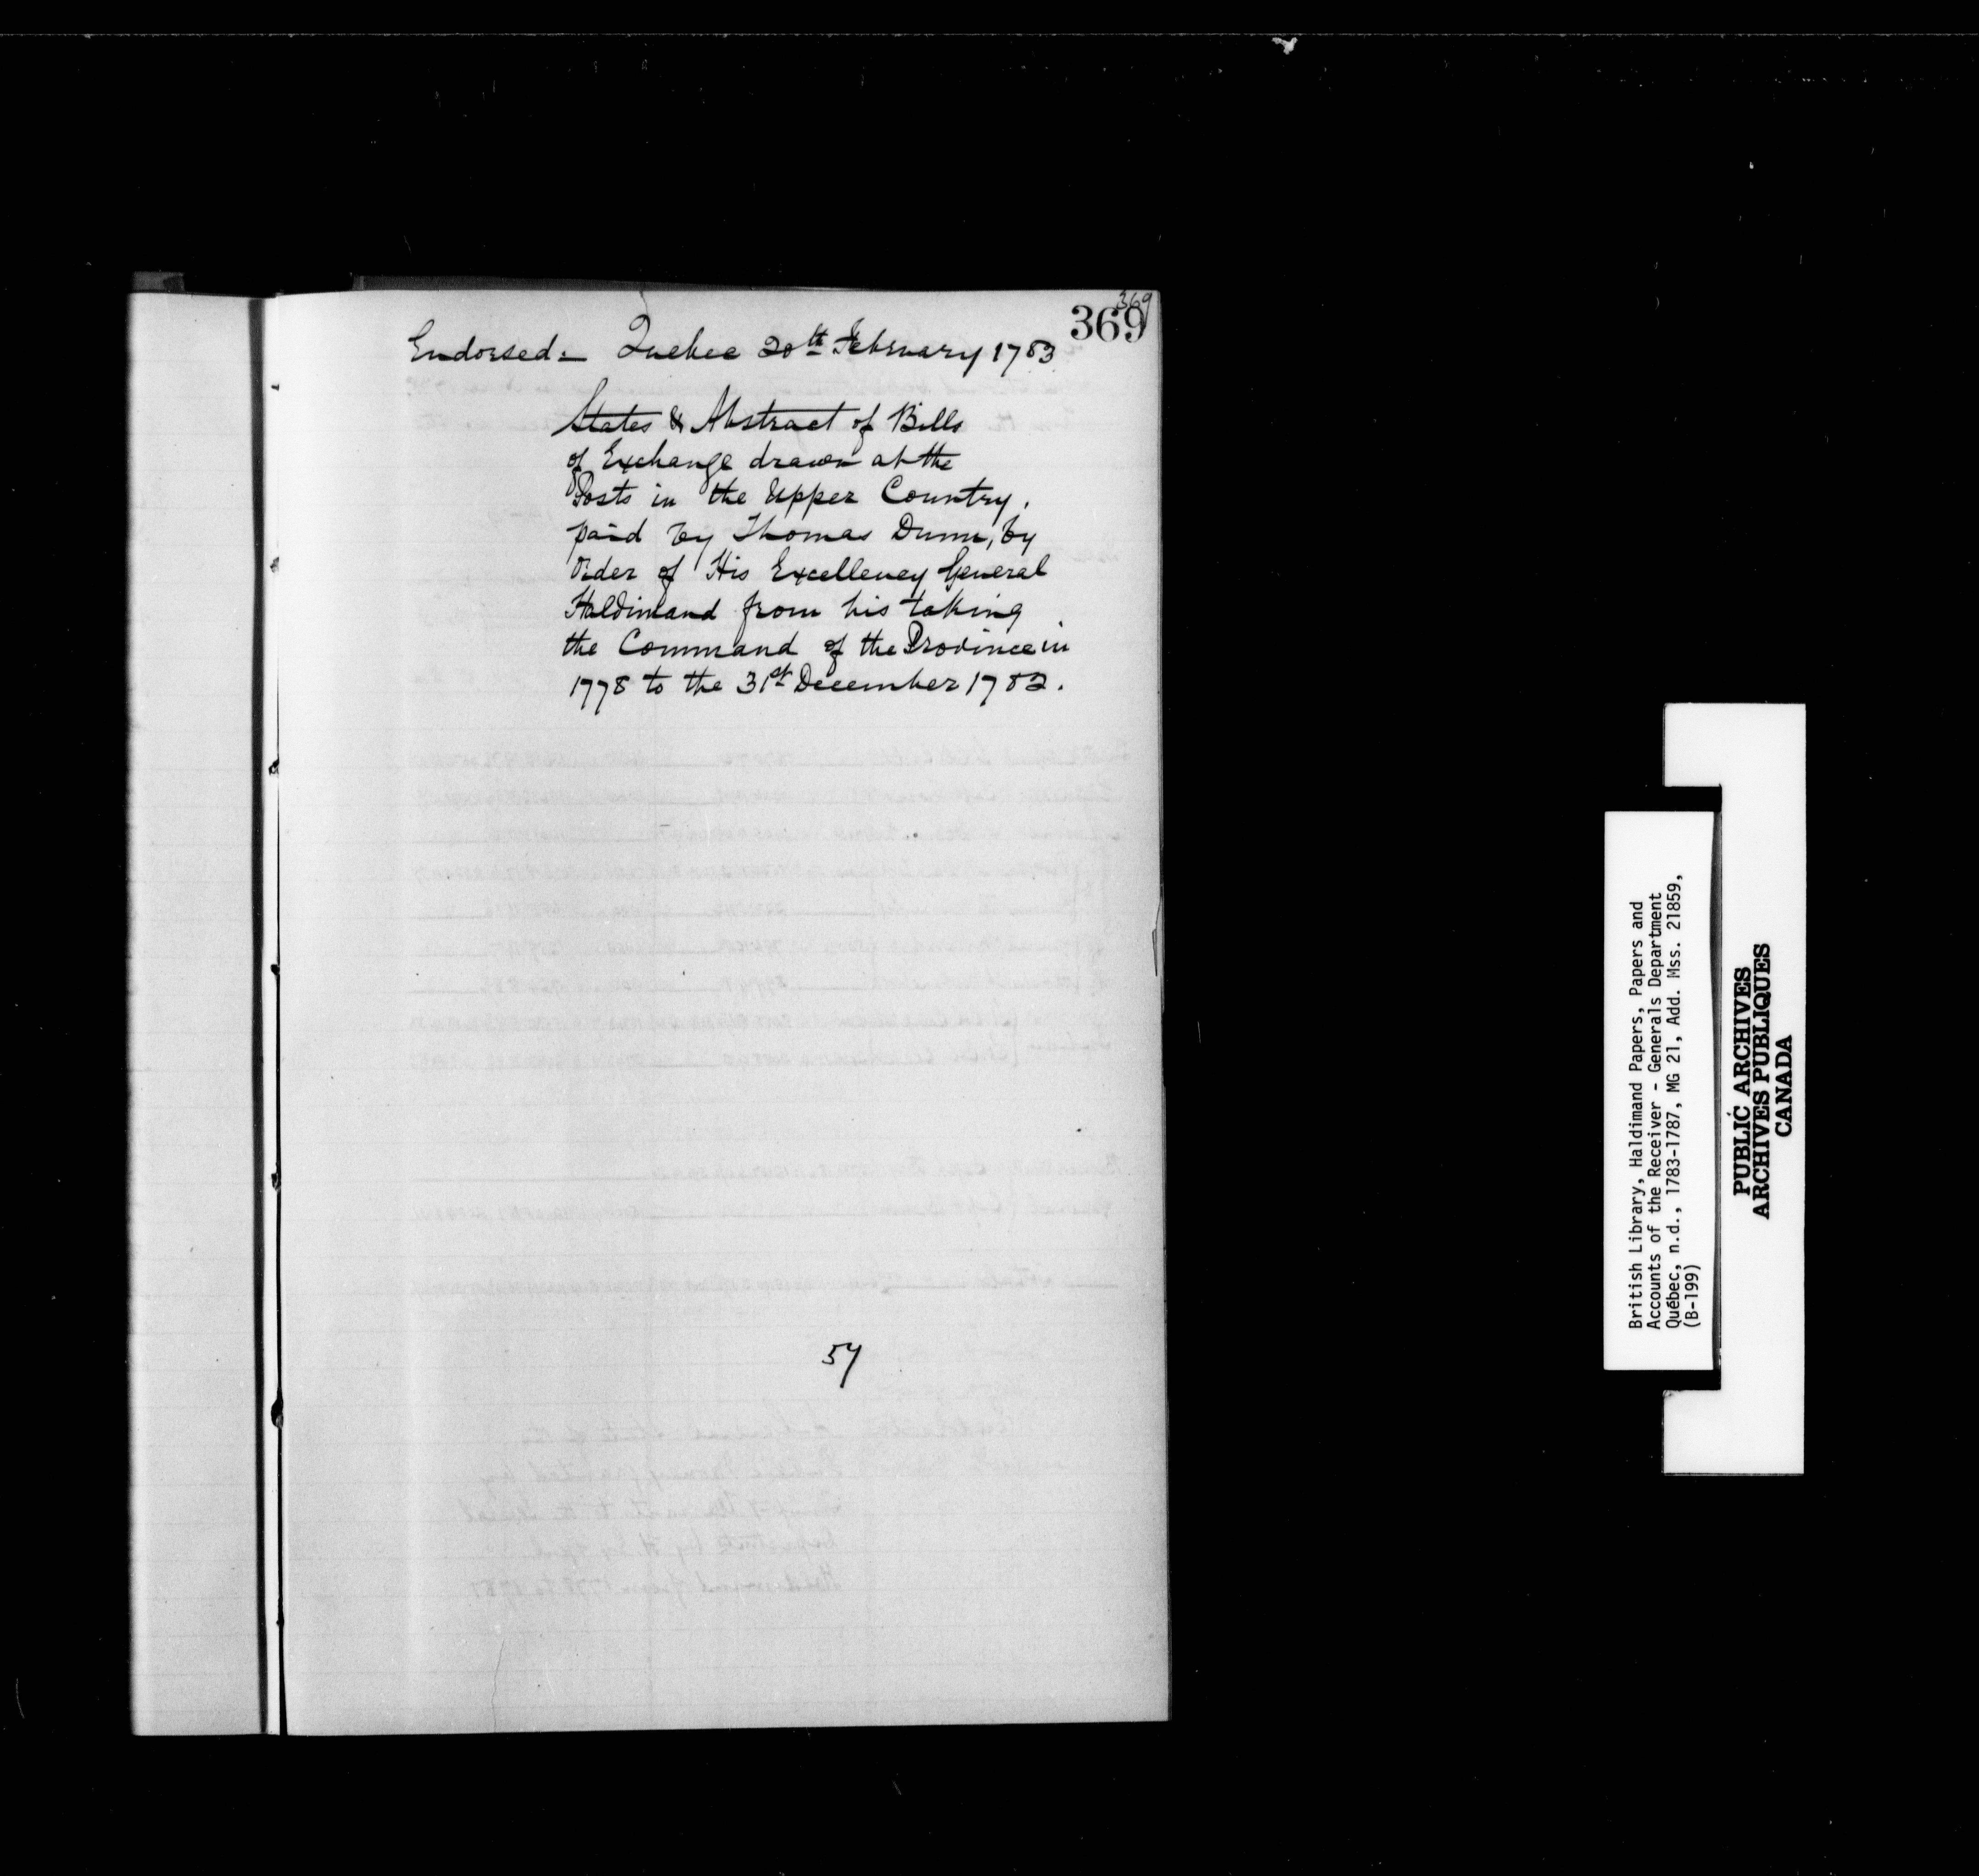 369
369
Endorsed:- Quebec 20th February 1783.
States & Abstract of Bills
of Exchange drawn at the
Posts in the Upper Country,
paid by Thomas Dunn, by
Order of His Excellency General
Haldimand from his taking
the Command of the Province in
1778 to the 31st December 1782.
57
British Library, Haldimand Papers, Papers and
Accounts of the Receiver - Generals Department
Québec, n.d., 1783-1787, MG 21, Add. Mss. 21859,
(B-199)
PUBLIC ARCHIVES
ARCHIVES PUBLIQUES
CANADA